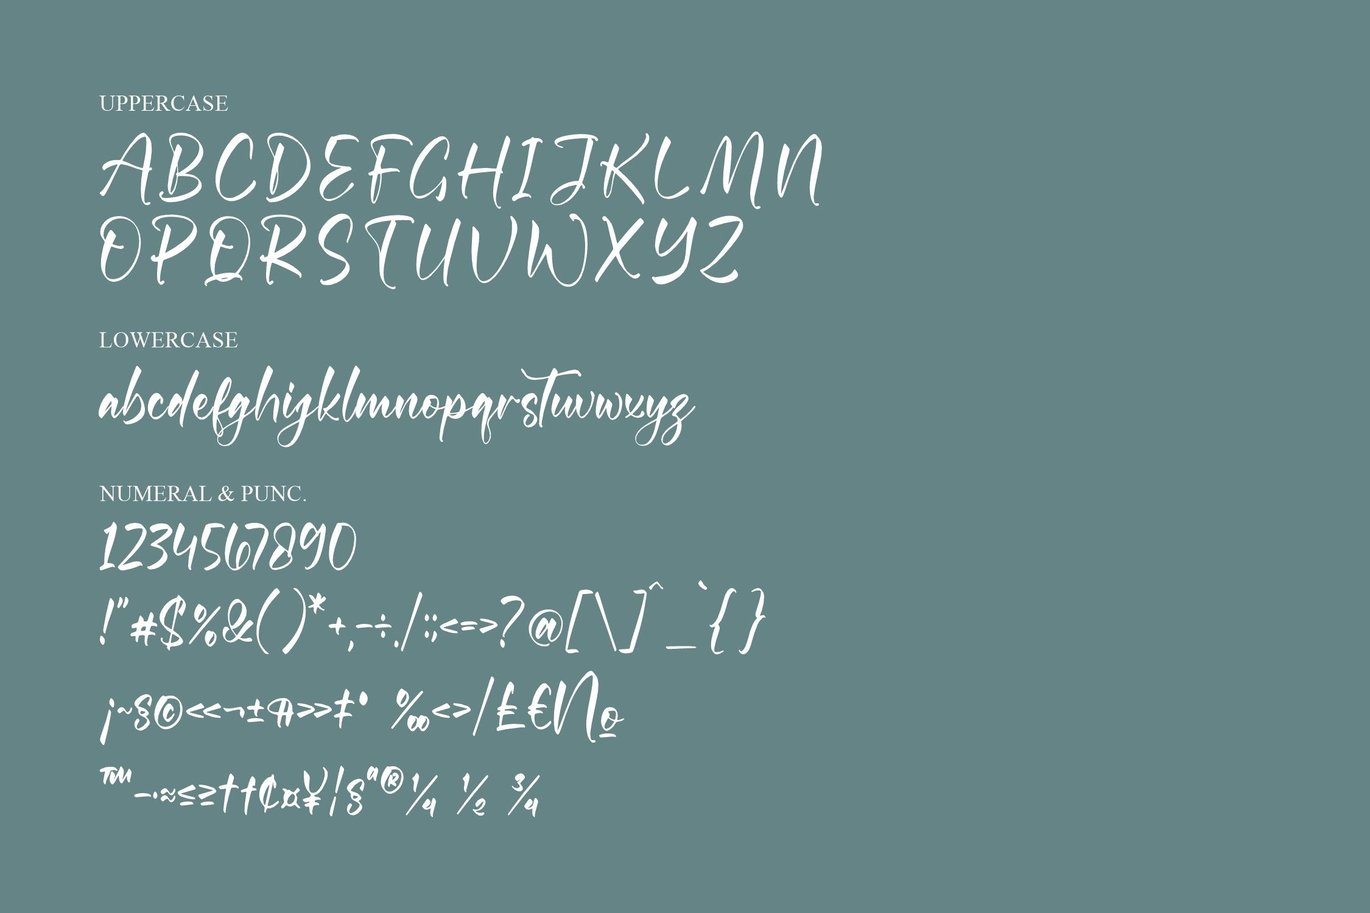 UPPERCASE
ABCDEFGHIJKLMN
OPQRSTUVWXYZ
LOWERCASE
abcdefghijklmnopqrstuvwxyz
NUMERAL & PUNC.
1234567890
!"#$%&()*+,-÷./:;<=>?@[\]^_`{}
¡~§©««¬±¶»»‡• ‰<>/£€№
™–·≈≤≥††¢¤¥¦§ª®¼ ½ ¾